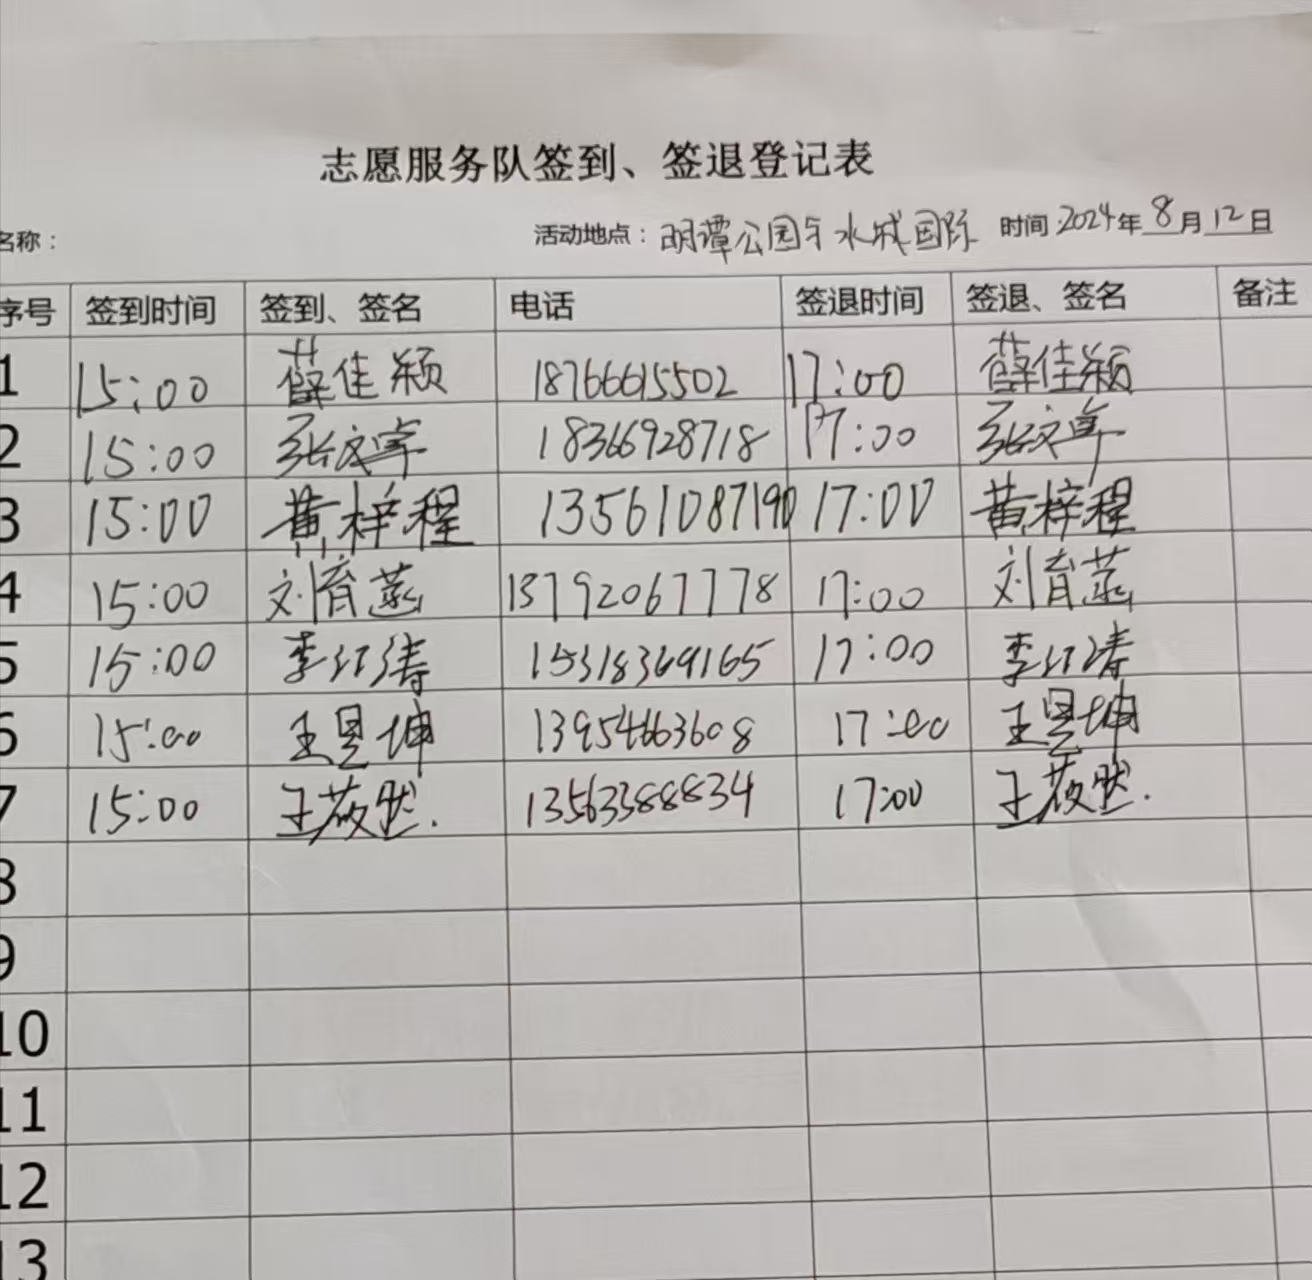 志愿服务队签到、签退登记表
名称： 活动地点：明潭公园与水城国际 时间 2024年 8月12日
序号 签到时间 签到、签名 电话 签退时间 签退、签名 备注
1 15:00 薛佳颖 18766615502 17:00 薛佳颖
2 15:00 张文宇 18366928718 17:00 张文宇
3 15:00 黄梓程 13561087190 17:00 黄梓程
4 15:00 刘育菡 13792067778 17:00 刘育菡
5 15:00 李江涛 15318369165 17:00 李江涛
6 15:00 王昱坤 13954663608 17:00 王昱坤
7 15:00 王莜然. 13563388834 17:00 王莜然.
8
9
10
11
12
13